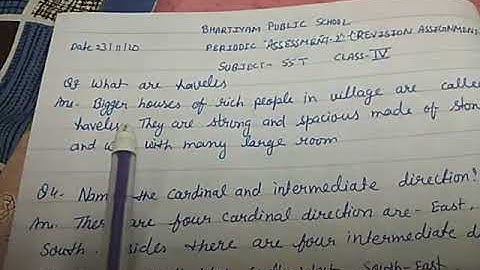 BHARTIYAM PUBLIC SCHOOL
Date 23/11/20 PERIODIC ASSESSMENT-2 (REVISION ASSIGNMENT
SUBJECT- SST CLASS-IV
Q3 What are havelis
Ans- Bigger houses of rich people in village are called
havelis. They are strong and spacious made of ston
and with many large room
Q4- the cardinal and intermediate direction?
An. are four cardinal direction are- East,
South. there are four intermediate d
South-East